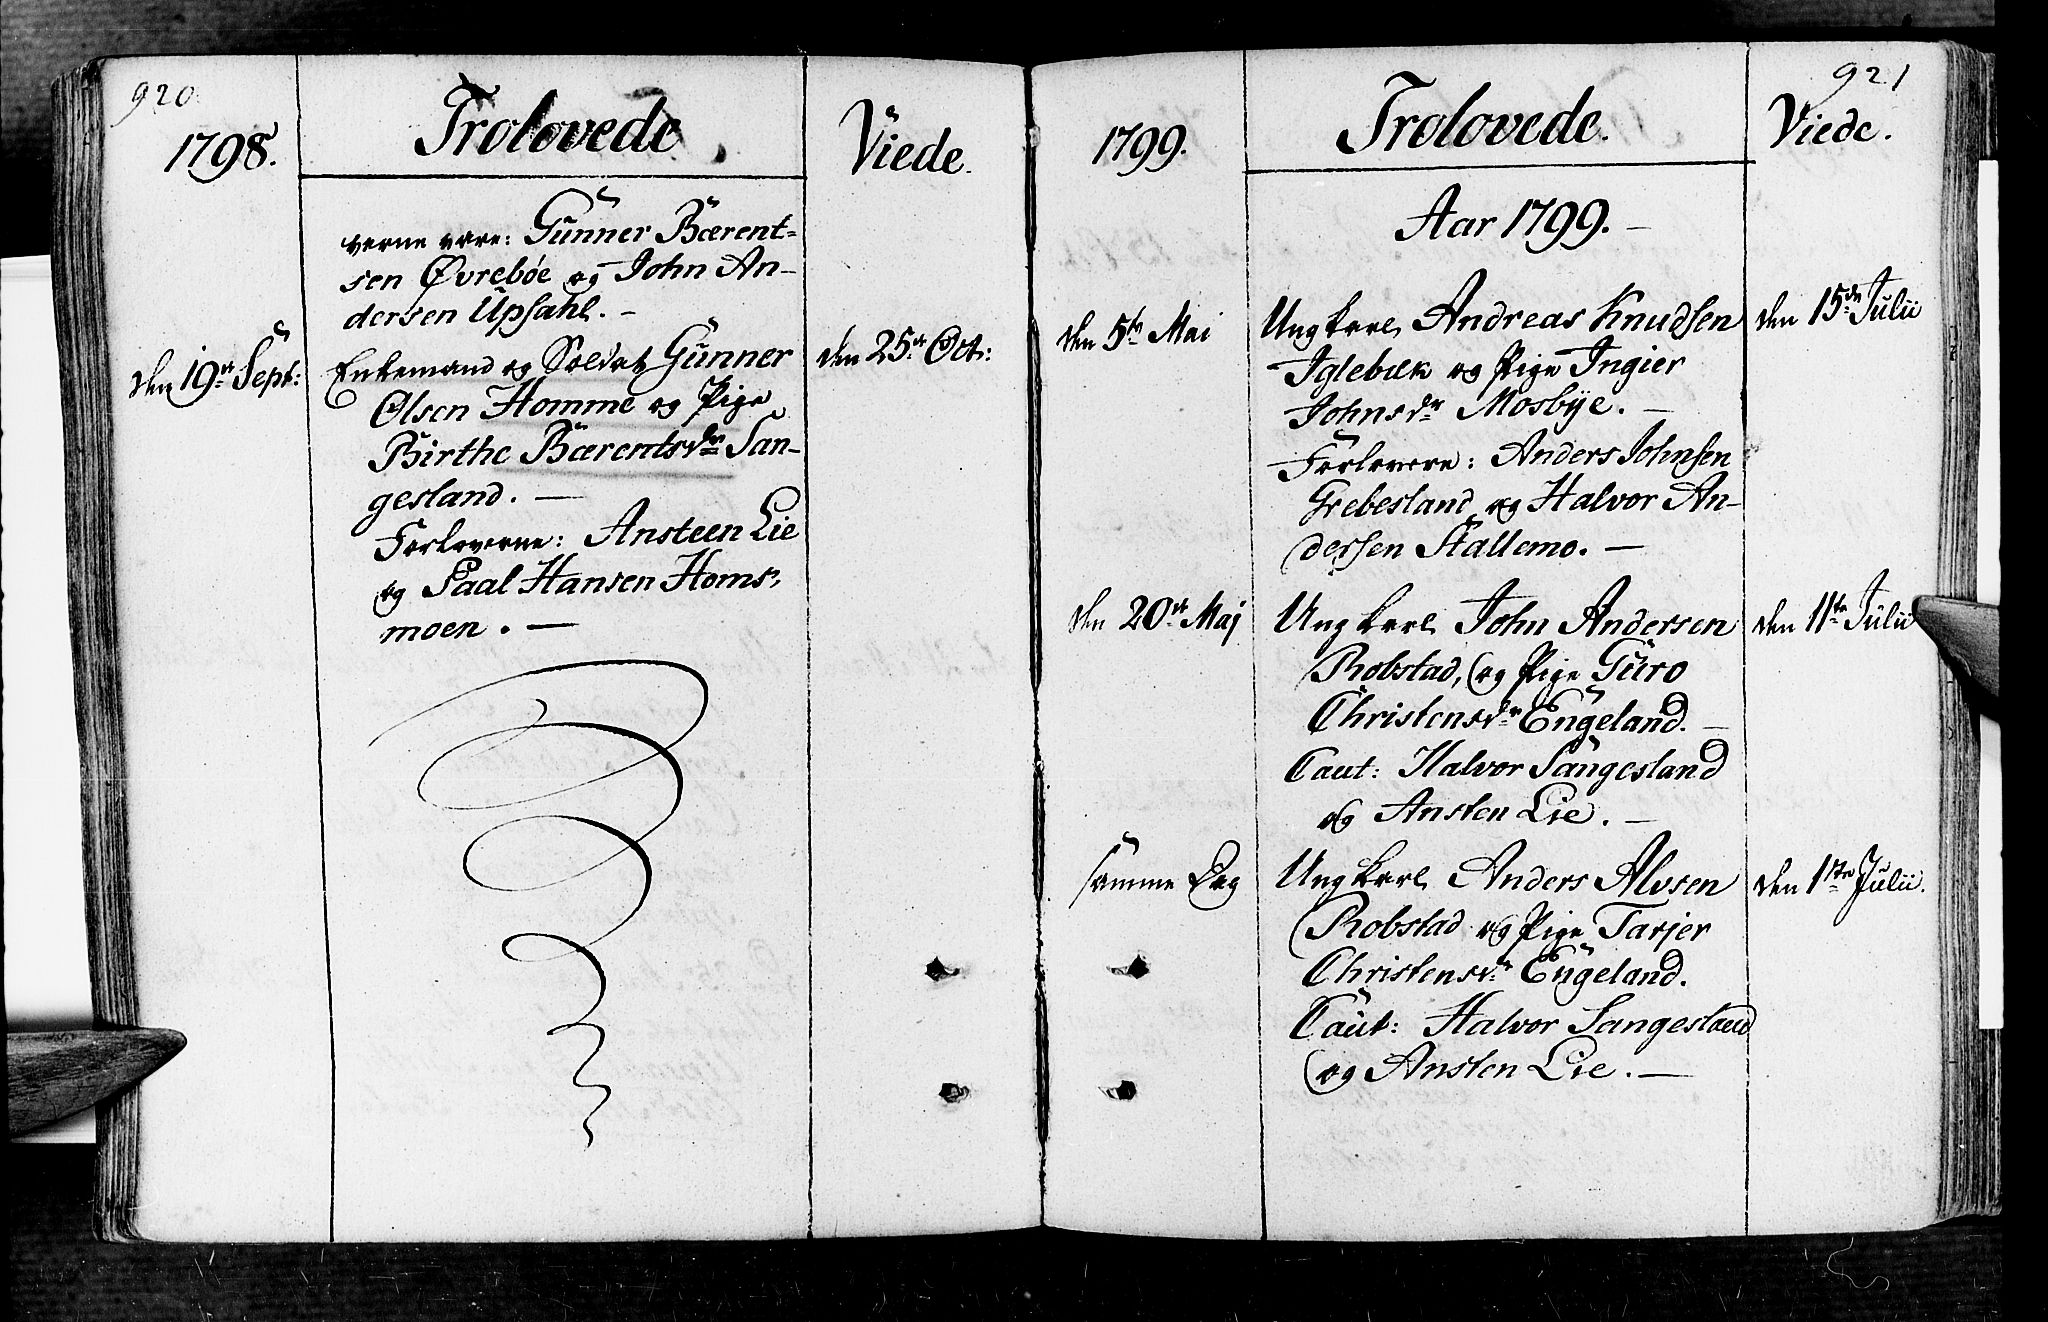 920.
1798.
Trolovede
Viede.
verne vare: Gunner Bærent-
sen Øvrebøe og John An-
dersen Upsahl. -
den 19de Sept:
Enkemand og Soldat Gunner
den 25de Oct:
Olsen Homme og Pige
Birthe Bærentsdr San-
gesland. -
Forloverne: Ansteen Lie
og Paal Hansen Homs-
moen. -
921
1799.
Trolovede.
Viede.
Aar 1799. -
den 5te Mai
Ungkarl Andreas Knudsen
den 15de Julii
Iglebæk og Pige Ingier
Johnsdr Mosbye. -
Forlovere: Anders Johnsen
Grebestand og Halvor An-
dersen Stallemo. -
den 20de Maj
Ungkarl John Andersen
den 11te Julii
Robstad, og Pige Guro
Christensdr Engeland. -
Caut: Halvor Sangesland
og Ansten Lie. -
samme Dag
Ungkarl Anders Alvsen
den 1ste Julii.
Robstad og Pige Tarjer
Christensdr Engeland.
Caut: Halvor Sangesland
og Ansten Lie. -